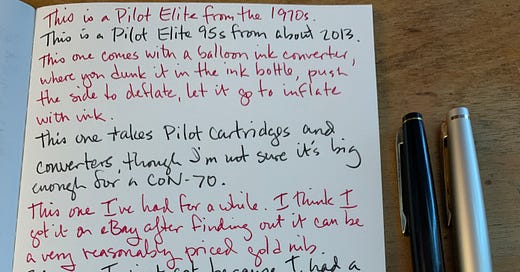 This is a Pilot Elite from the 1970s.
This is a Pilot Elite 95s from about 2013.
This one comes with a balloon ink converter,
where you dunk it in the ink bottle, push
the side to deflate, let it go to inflate
with ink.
This one takes Pilot cartridges and
converters, though I'm not sure it's big
enough for a CON-70.
This one I've had for a while. I think I
got it on eBay after finding out it can be
a very reasonably priced gold nib.
I just got because I had a